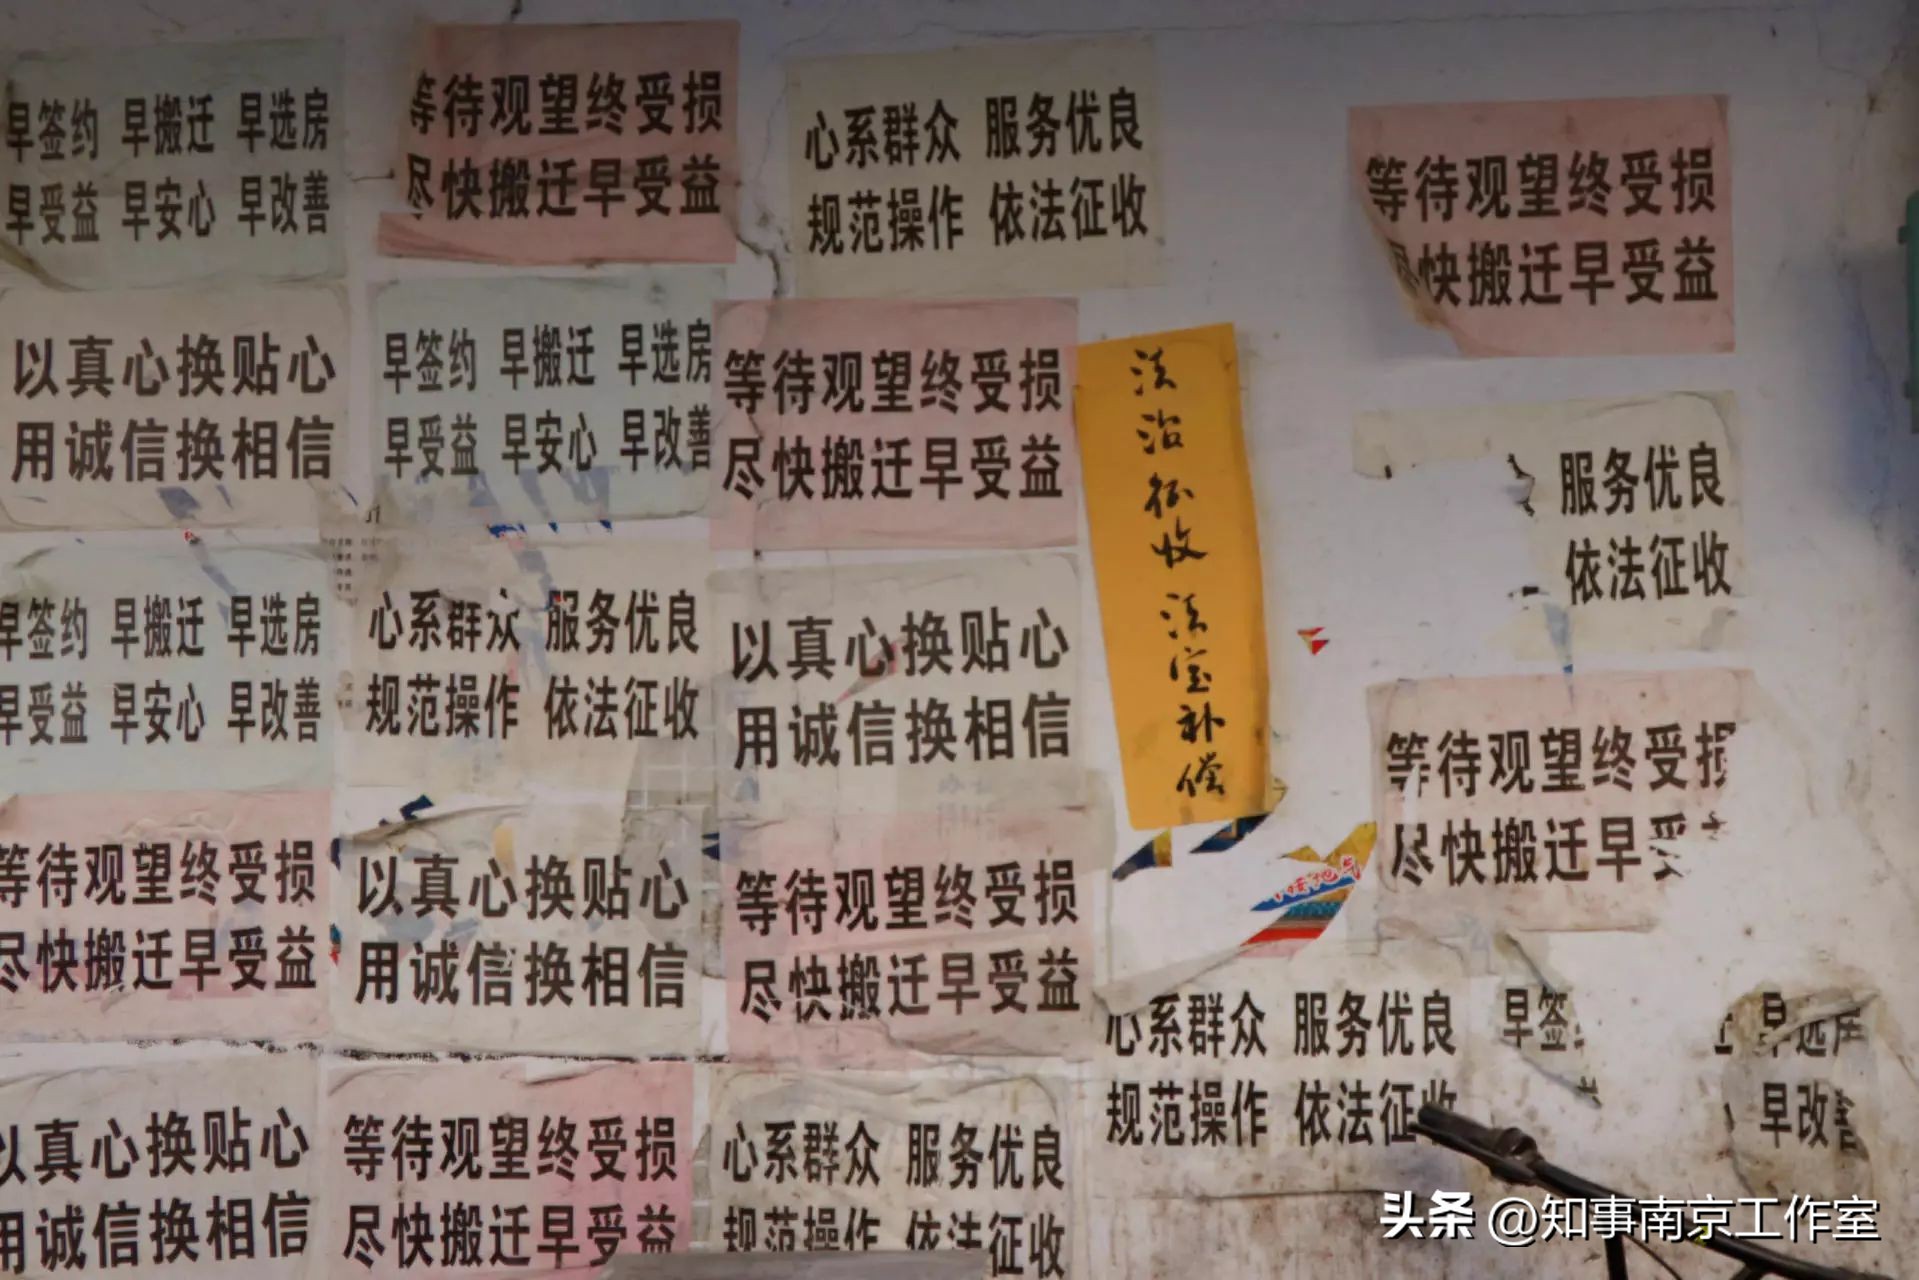 早签约 早搬迁 早选房
早受益 早安心 早改善
等待观望终受损
尽快搬迁早受益
心系群众 服务优良
规范操作 依法征收
等待观望终受损
尽快搬迁早受益
以真心换贴心
用诚信换相信
早签约 早搬迁 早选房
早受益 早安心 早改善
等待观望终受损
尽快搬迁早受益
法治征收 法定补偿
服务优良
依法征收
早签约 早搬迁 早选房
早受益 早安心 早改善
心系群众 服务优良
规范操作 依法征收
以真心换贴心
用诚信换相信
等待观望终受损
尽快搬迁早受
等待观望终受损
尽快搬迁早受益
以真心换贴心
用诚信换相信
等待观望终受损
尽快搬迁早受益
心系群众 服务优良
规范操作 依法征收
早签 早选房
早改善
以真心换贴心
用诚信换相信
等待观望终受损
尽快搬迁早受益
心系群众 服务优良
规范操作 依法征收
头条 @知事南京工作室